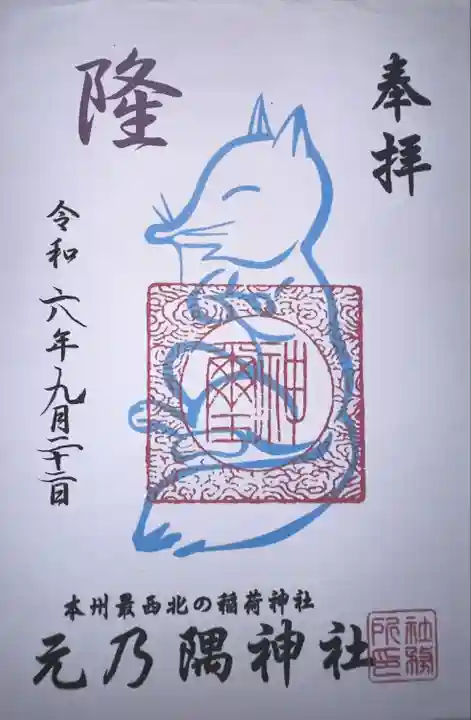 奉拝
隆
神璽
令和六年九月二十二日
本州最西北の稲荷神社
元乃隅神社
社務所印